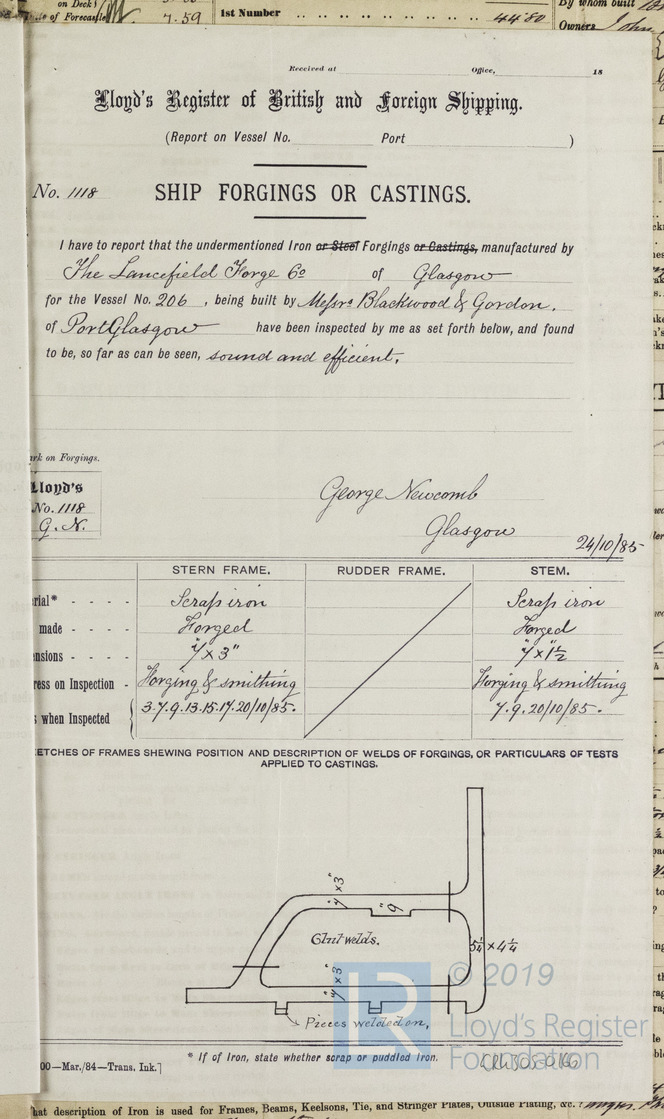 on Deck
of Forecastle
7.59
1st Number .. .. .. .. .. .. .. .. .. 4480
By whom built
Owners John
Received at Office, 18
Lloyd's Register of British and Foreign Shipping.
(Report on Vessel No. Port )
No. 1118 SHIP FORGINGS OR CASTINGS.
I have to report that the undermentioned Iron or Steel Forgings or Castings, manufactured by
The Lancefield Forge Co of Glasgow
for the Vessel No. 206, being built by Messrs Blackwood & Gordon.
of Port Glasgow have been inspected by me as set forth below, and found
to be, so far as can be seen, sound and efficient.
rk on Forgings.
Lloyd's
No. 1118
G. N.
George Newcomb
Glasgow
24/10/85
STERN FRAME. RUDDER FRAME. STEM.
rial* - - - - Scrap iron Scrap iron
made - - - - Forged Forged
ensions - - - - 7" x 3" 7" x 1½
ress on Inspection - Forging & smithing Forging & smithing
when Inspected 3.7.9.13.15.17.20/10/85. 7.9.20/10/85.
ETCHES OF FRAMES SHEWING POSITION AND DESCRIPTION OF WELDS OF FORGINGS, OR PARTICULARS OF TESTS
APPLIED TO CASTINGS.
7" x 3"
9"
Glut welds.
5¼ x 4¼
7" x 3"
Pieces welded on,
© 2019
LR
Lloyd's Register
Foundation
* If of Iron, state whether scrap or puddled Iron.
00—Mar./84—Trans. Ink.]
hat description of Iron is used for Frames, Beams, Keelsons, Tie, and Stringer Plates, Outside Plating, &c. :